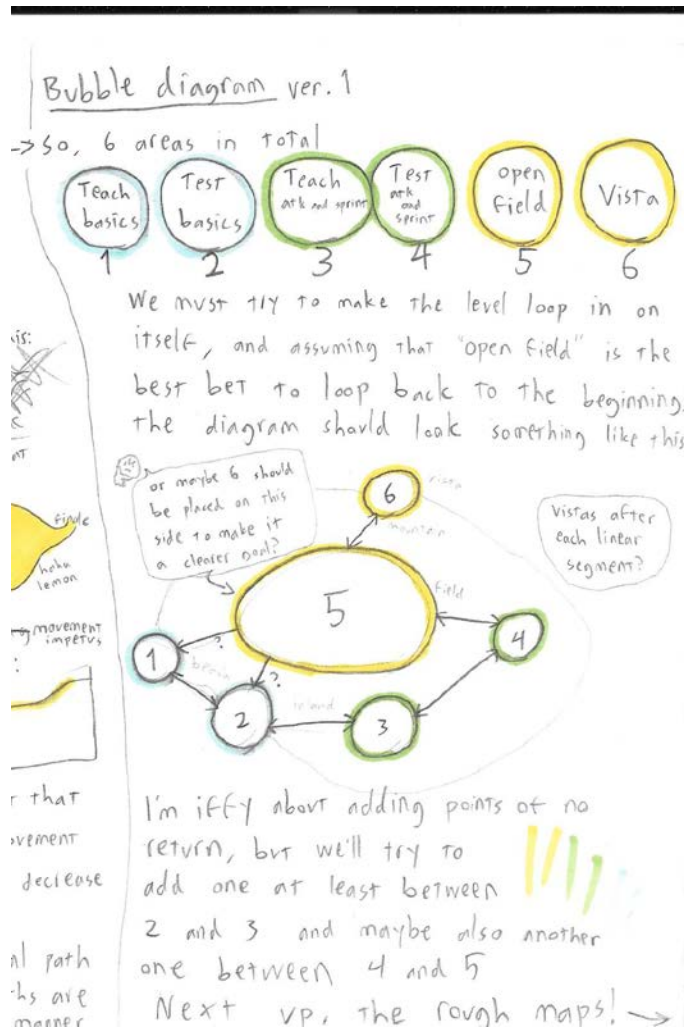 Bubble diagram ver. 1
->so, 6 areas in total
Teach
basics
1
Test
basics
2
Teach
atk and sprint
3
Test
atk
and
sprint
4
open
field
5
Vista
6
We must try to make the level loop in on
itself, and assuming that "open field" is the
best bet to loop back to the beginning,
the diagram should look something like this
or maybe 6 should
be placed on this
side to make it
a clearer goal?
6
vista
mountain
Vistas after
each linear
segment?
5
field
4
1
?
?
2
inland
3
I'm iffy about adding points of no
return, but we'll try to
add one at least between
2 and 3 and maybe also another
one between 4 and 5
Next up, the rough maps! ->
is:
finale
lemon
movement
impetus
that
decrease
path
are
manner